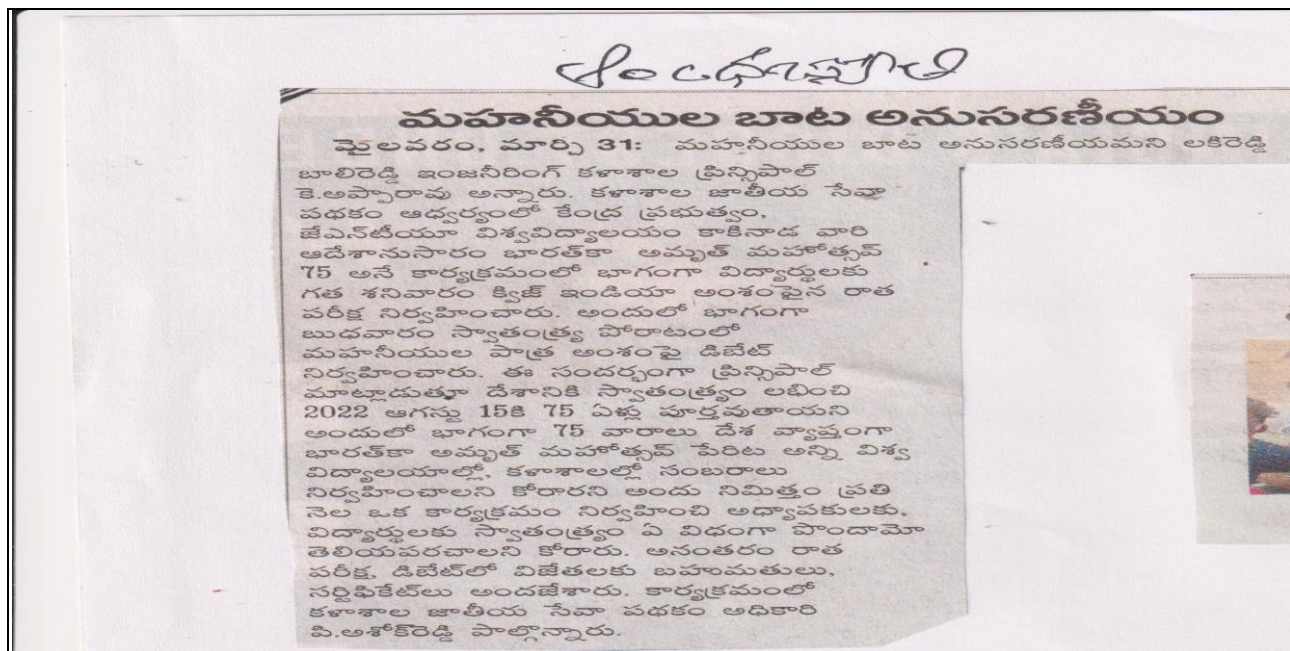 ఆంధ్రప్రభ
మహనీయుల బాట అనుసరణీయం
మైలవరం, మార్చి 31: మహనీయుల బాట అనుసరణీయమని లకిరెడ్డి
బాలిరెడ్డి ఇంజనీరింగ్ కళాశాల ప్రిన్సిపాల్
కె.అప్పారావు అన్నారు. కళాశాల జాతీయ సేవా
పథకం ఆధ్వర్యంలో కేంద్ర ప్రభుత్వం,
జేఎన్‌టీయూ విశ్వవిద్యాలయం కాకినాడ వారి
ఆదేశానుసారం భారత్‌కా అమృత్ మహోత్సవ్
75 అనే కార్యక్రమంలో భాగంగా విద్యార్థులకు
గత శనివారం క్విజ్ ఇండియా అంశంపైన రాత
పరీక్ష నిర్వహించారు. అందులో భాగంగా
బుధవారం స్వాతంత్ర్య పోరాటంలో
మహనీయుల పాత్ర అంశంపై డిబేట్
నిర్వహించారు. ఈ సందర్భంగా ప్రిన్సిపాల్
మాట్లాడుతూ దేశానికి స్వాతంత్ర్యం లభించి
2022 ఆగస్టు 15కి 75 ఏళ్లు పూర్తవుతాయని
అందులో భాగంగా 75 వారాలు దేశ వ్యాప్తంగా
భారత్‌కా అమృత్ మహోత్సవ్ పేరిట అన్ని విశ్వ
విద్యాలయాల్లో, కళాశాలల్లో సంబరాలు
నిర్వహించాలని కోరారని అందు నిమిత్తం ప్రతి
నెల ఒక కార్యక్రమం నిర్వహించి అధ్యాపకులకు,
విద్యార్థులకు స్వాతంత్ర్యం ఏ విధంగా పొందామో
తెలియపరచాలని కోరారు. అనంతరం రాత
పరీక్ష, డిబేట్‌లో విజేతలకు బహుమతులు,
సర్టిఫికేట్‌లు అందజేశారు. కార్యక్రమంలో
కళాశాల జాతీయ సేవా పథకం అధికారి
పి.అశోక్‌రెడ్డి పాల్గొన్నారు.